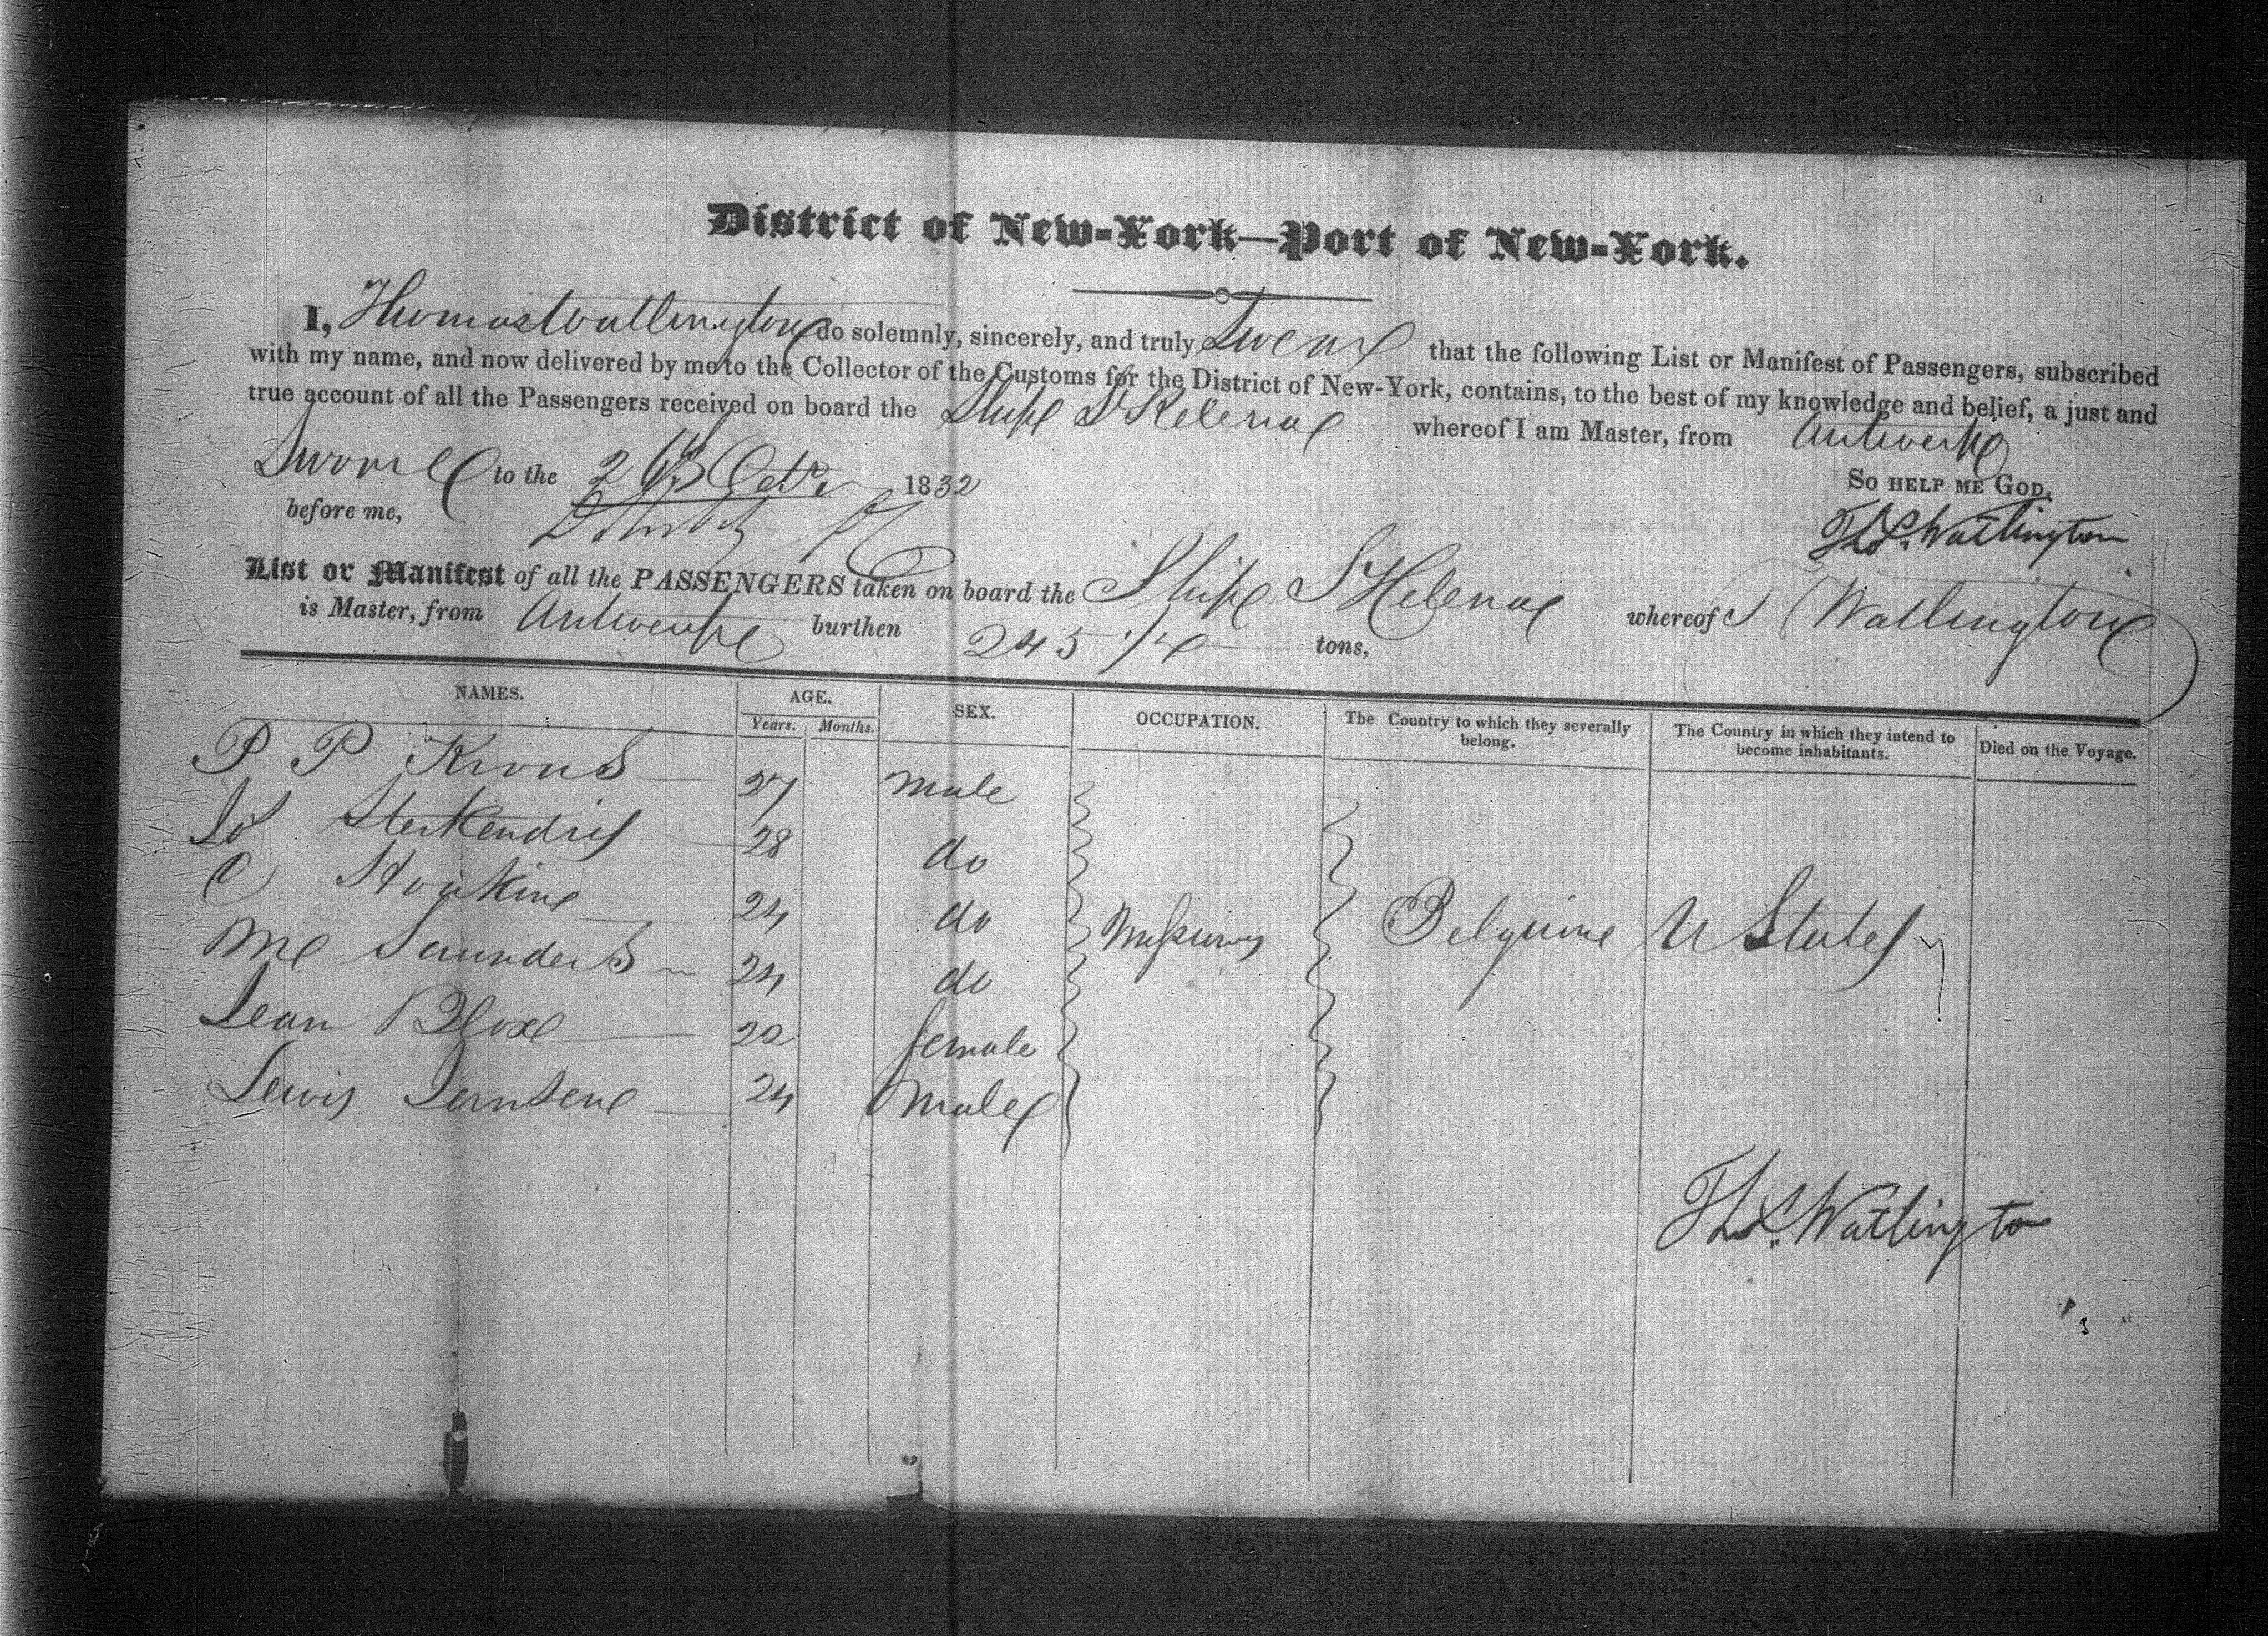 District of New-York—Port of New-York.
I, Thomas Watlington do solemnly, sincerely, and truly Swear that the following List or Manifest of Passengers, subscribed
with my name, and now delivered by me to the Collector of the Customs for the District of New-York, contains, to the best of my knowledge and belief, a just and
true account of all the Passengers received on board the Ship St Helena whereof I am Master, from Antwerp
Sworn to the 26 Octr 1832 So help me God.
before me, Thos. Watlington
List or Manifest of all the PASSENGERS taken on board the Ship St Helena whereof T Watlington
is Master, from Antwerp burthen 245 tons,
NAMES. AGE. SEX. OCCUPATION. The Country to which they severally belong. The Country in which they intend to become inhabitants. Died on the Voyage.
Years. Months.
P P Krous 27 male
28 do
C 24 do
Saunders 24 do
Missionarys Belgium U States
22 female
Lewis 24 Male
Thos. Watlington